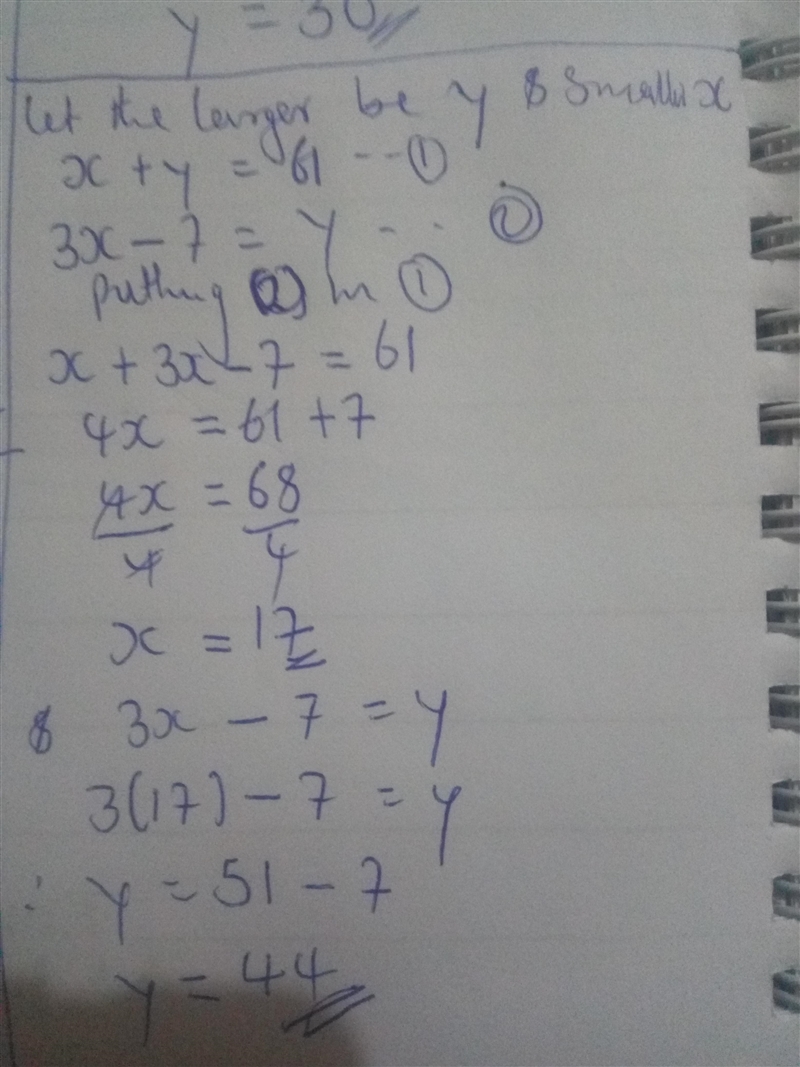 y = 30
Let the larger be y & smaller x
x + y = 61 -- ①
3x - 7 = y - - ②
putting ② in ①
x + 3x - 7 = 61
4x = 61 + 7
4x = 68
4 4
x = 17
& 3x - 7 = y
3(17) - 7 = y
: y = 51 - 7
y = 44